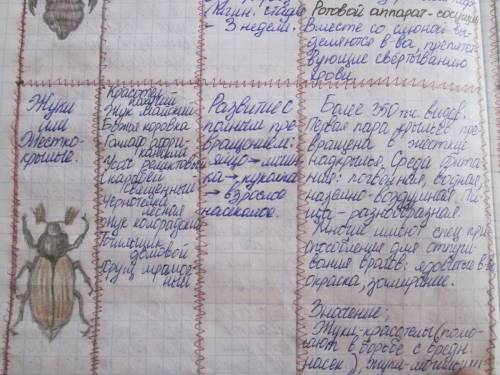 Личин. стадия
- 3 недели.
Ротовой аппарат - сосущий
Вместе со слюной вы-
деляются в-ва, препятст-
вующие свертыванию
крови.
Жуки
или
Жестко-
крылые.
Красотел
пахучий
Жук майский
Божья коровка
Голиаф афри-
канский
Усач
Скарабей
священный
Чернотелка
лесная
Жук колорадский
Точильщик
домовой
Хрущ мрамор-
ный
Развитие с
полным пре-
вращением:
яйцо → личин-
ка → куколка
→ взрослое
насекомое.
Более 350 тыс. видов.
Первая пара крыльев пре-
вращена в жесткие
надкрылья. Среда обита-
ния: почвенная, водная,
наземно-воздушная. Пи-
ща - разнообразная.
Многие имеют спец. при-
способления для отпуги-
вания врагов: ядовитые в-ва
окраска, замирание.
Значение:
Жуки-красотелы (помо-
гают в борьбе с вредн.
насек.), жуки-могильщ